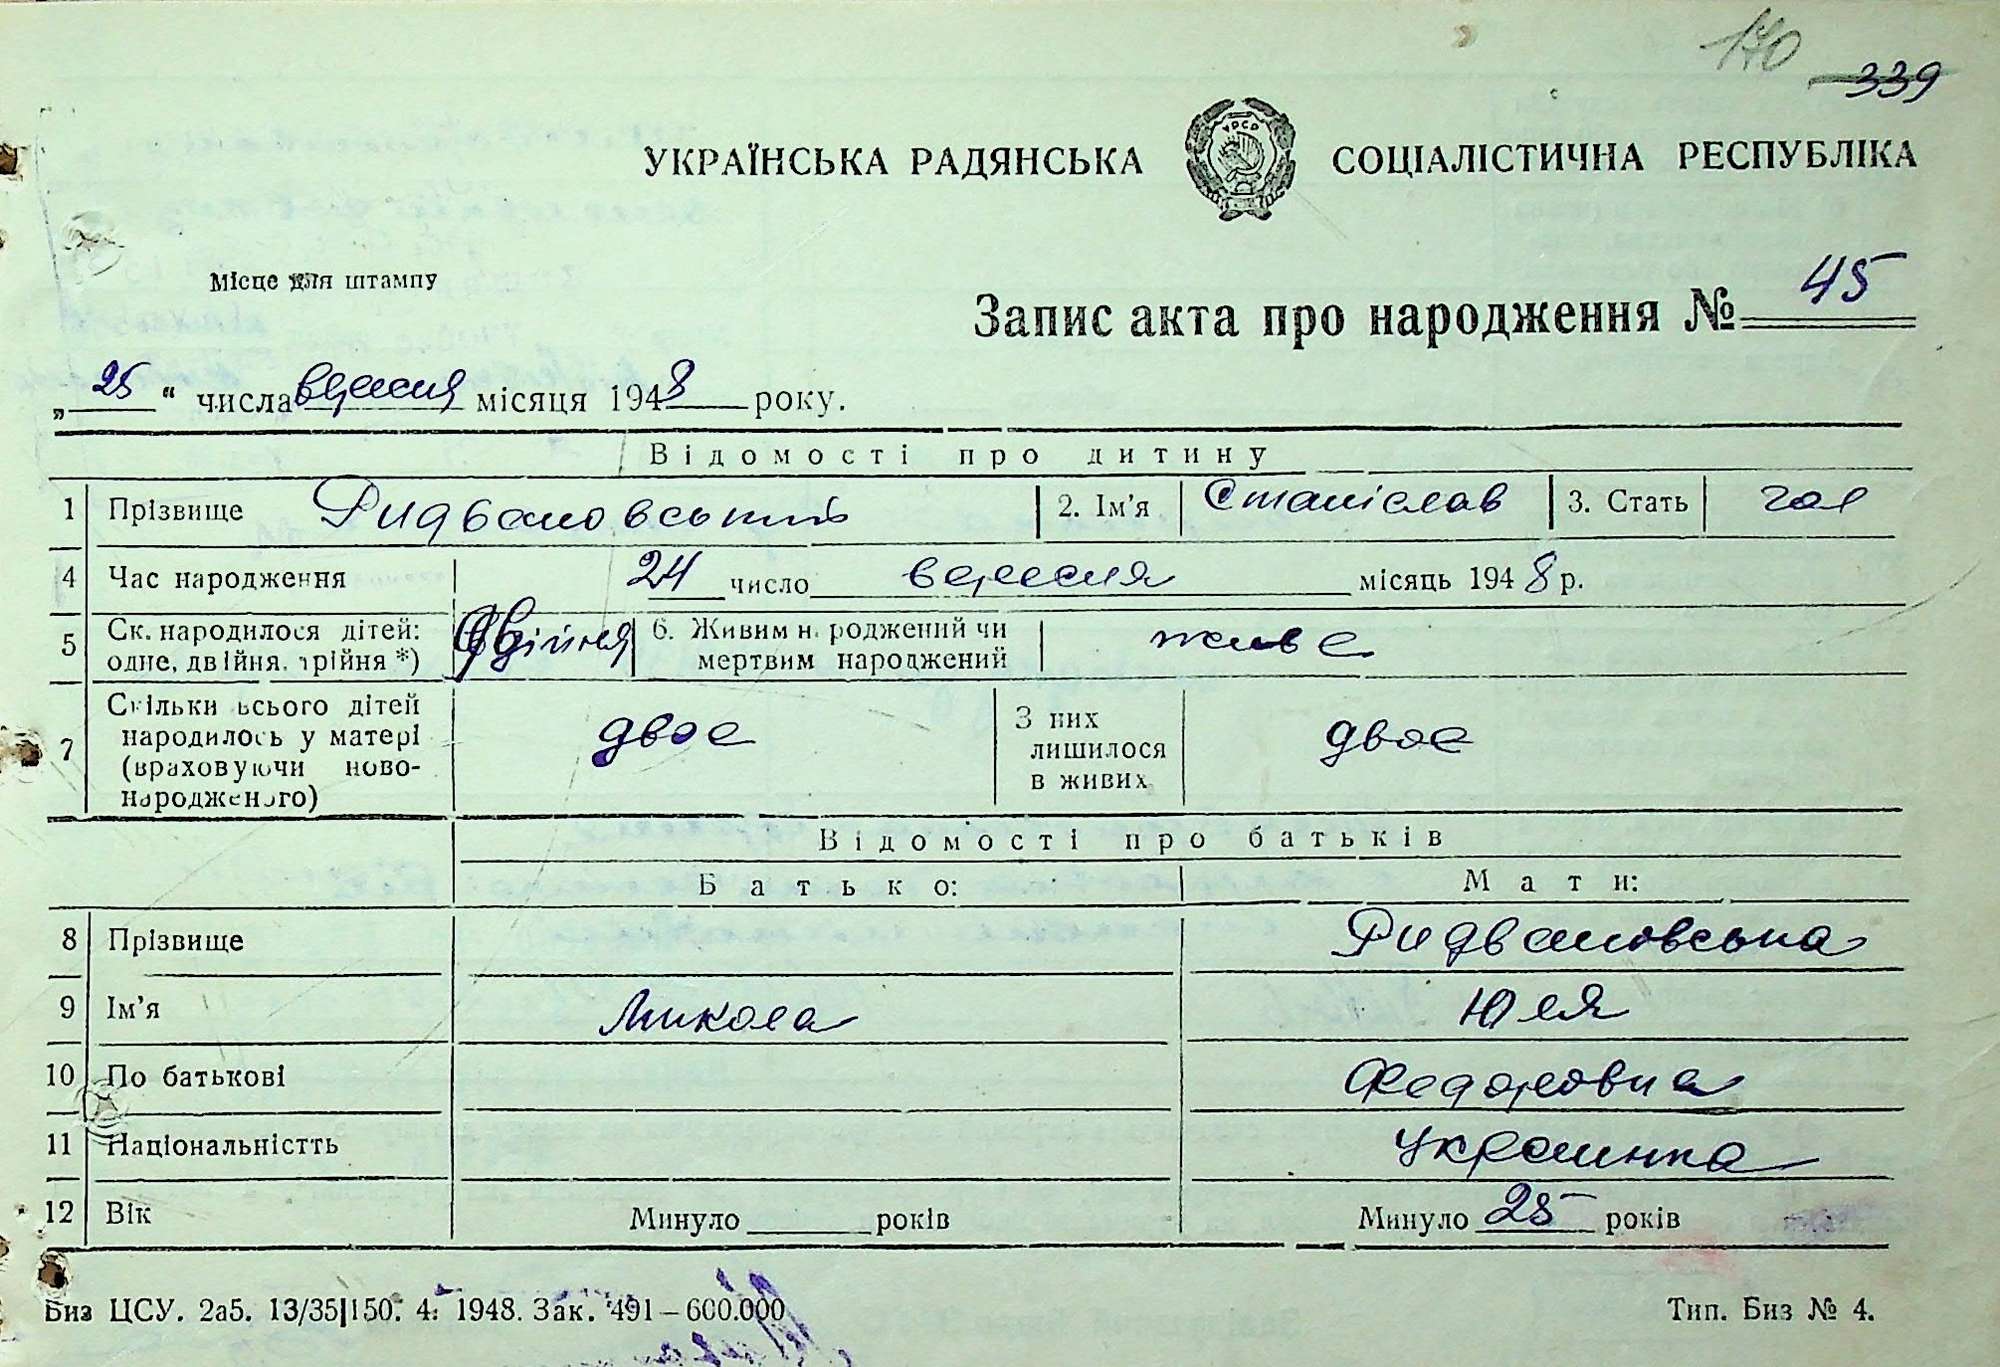 170 339
УКРАЇНСЬКА РАДЯНСЬКА УРСР СОЦІАЛІСТИЧНА РЕСПУБЛІКА
Місце для штампу
Запис акта про народження № 45
„25“ числа вересня місяця 1948 року.
Відомості про дитину
1 Прізвище Ридвановський 2. Ім'я Станіслав 3. Стать чол
4 Час народження 24 число вересня місяць 1948 р.
5 Ск. народилося дітей: одне, двійня, трійня *) двійня 6. Живим народжений чи мертвим народжений живе
7 Скільки всього дітей народилось у матері (враховуючи ново-народженого) двоє З них лишилося в живих двоє
Відомості про батьків
Батько: Мати:
8 Прізвище Ридвановська
9 Ім'я Микола Юля
10 По батькові Федоровна
11 Національністть Украинка
12 Вік Минуло ____ років Минуло 25 років
Биз ЦСУ. 2а5. 13/35|150. 4. 1948. Зак. 491—600.000 Тип. Биз № 4.